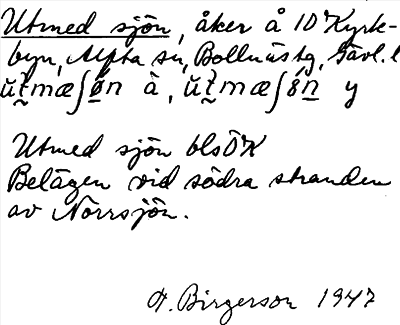 Utmed sjön, åker å 1D Kyrk-
byn, Alfta sn, Bollnäs tg, Gävl. l
ŭt̰mæʃøn à, ŭt̰mæʃ8n y
Utmed sjön bls ÖK
Belägen vid södra stranden
av Norrsjön.
A. Birgerson 1947